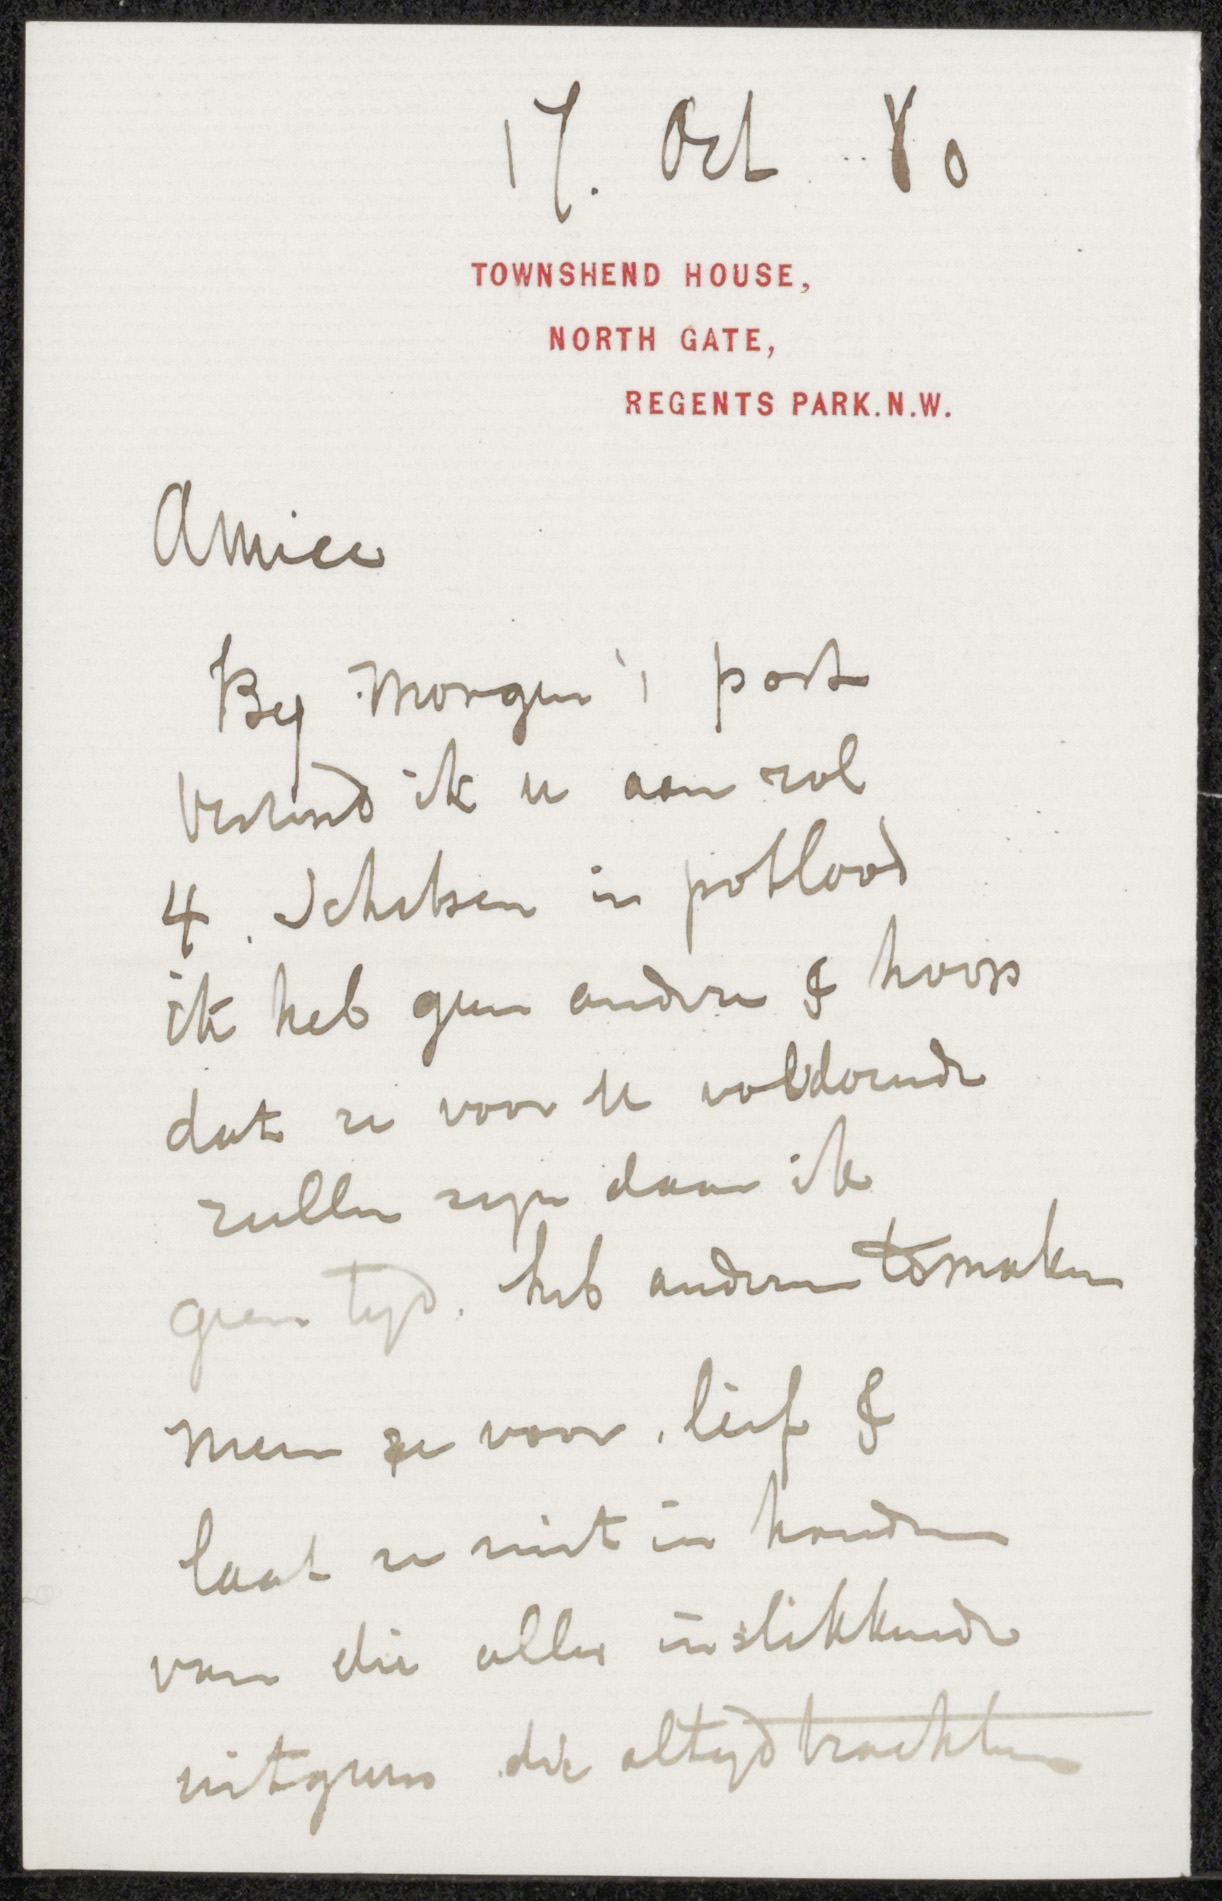 17. Oct 80
TOWNSHEND HOUSE,
NORTH GATE,
REGENTS PARK.N.W.
Amice
By Morgen's post
verzend ik u aan rol
4. Schetsen in potlood
ik heb geen andere & hoop
dat ze voor u voldoende
zullen zyn daar ik
geen tyd. heb anderen te maken
Neem ze voor. lief &
laat ze niet in handen
van die alles inslikkende
uitgevers die altyd trachten